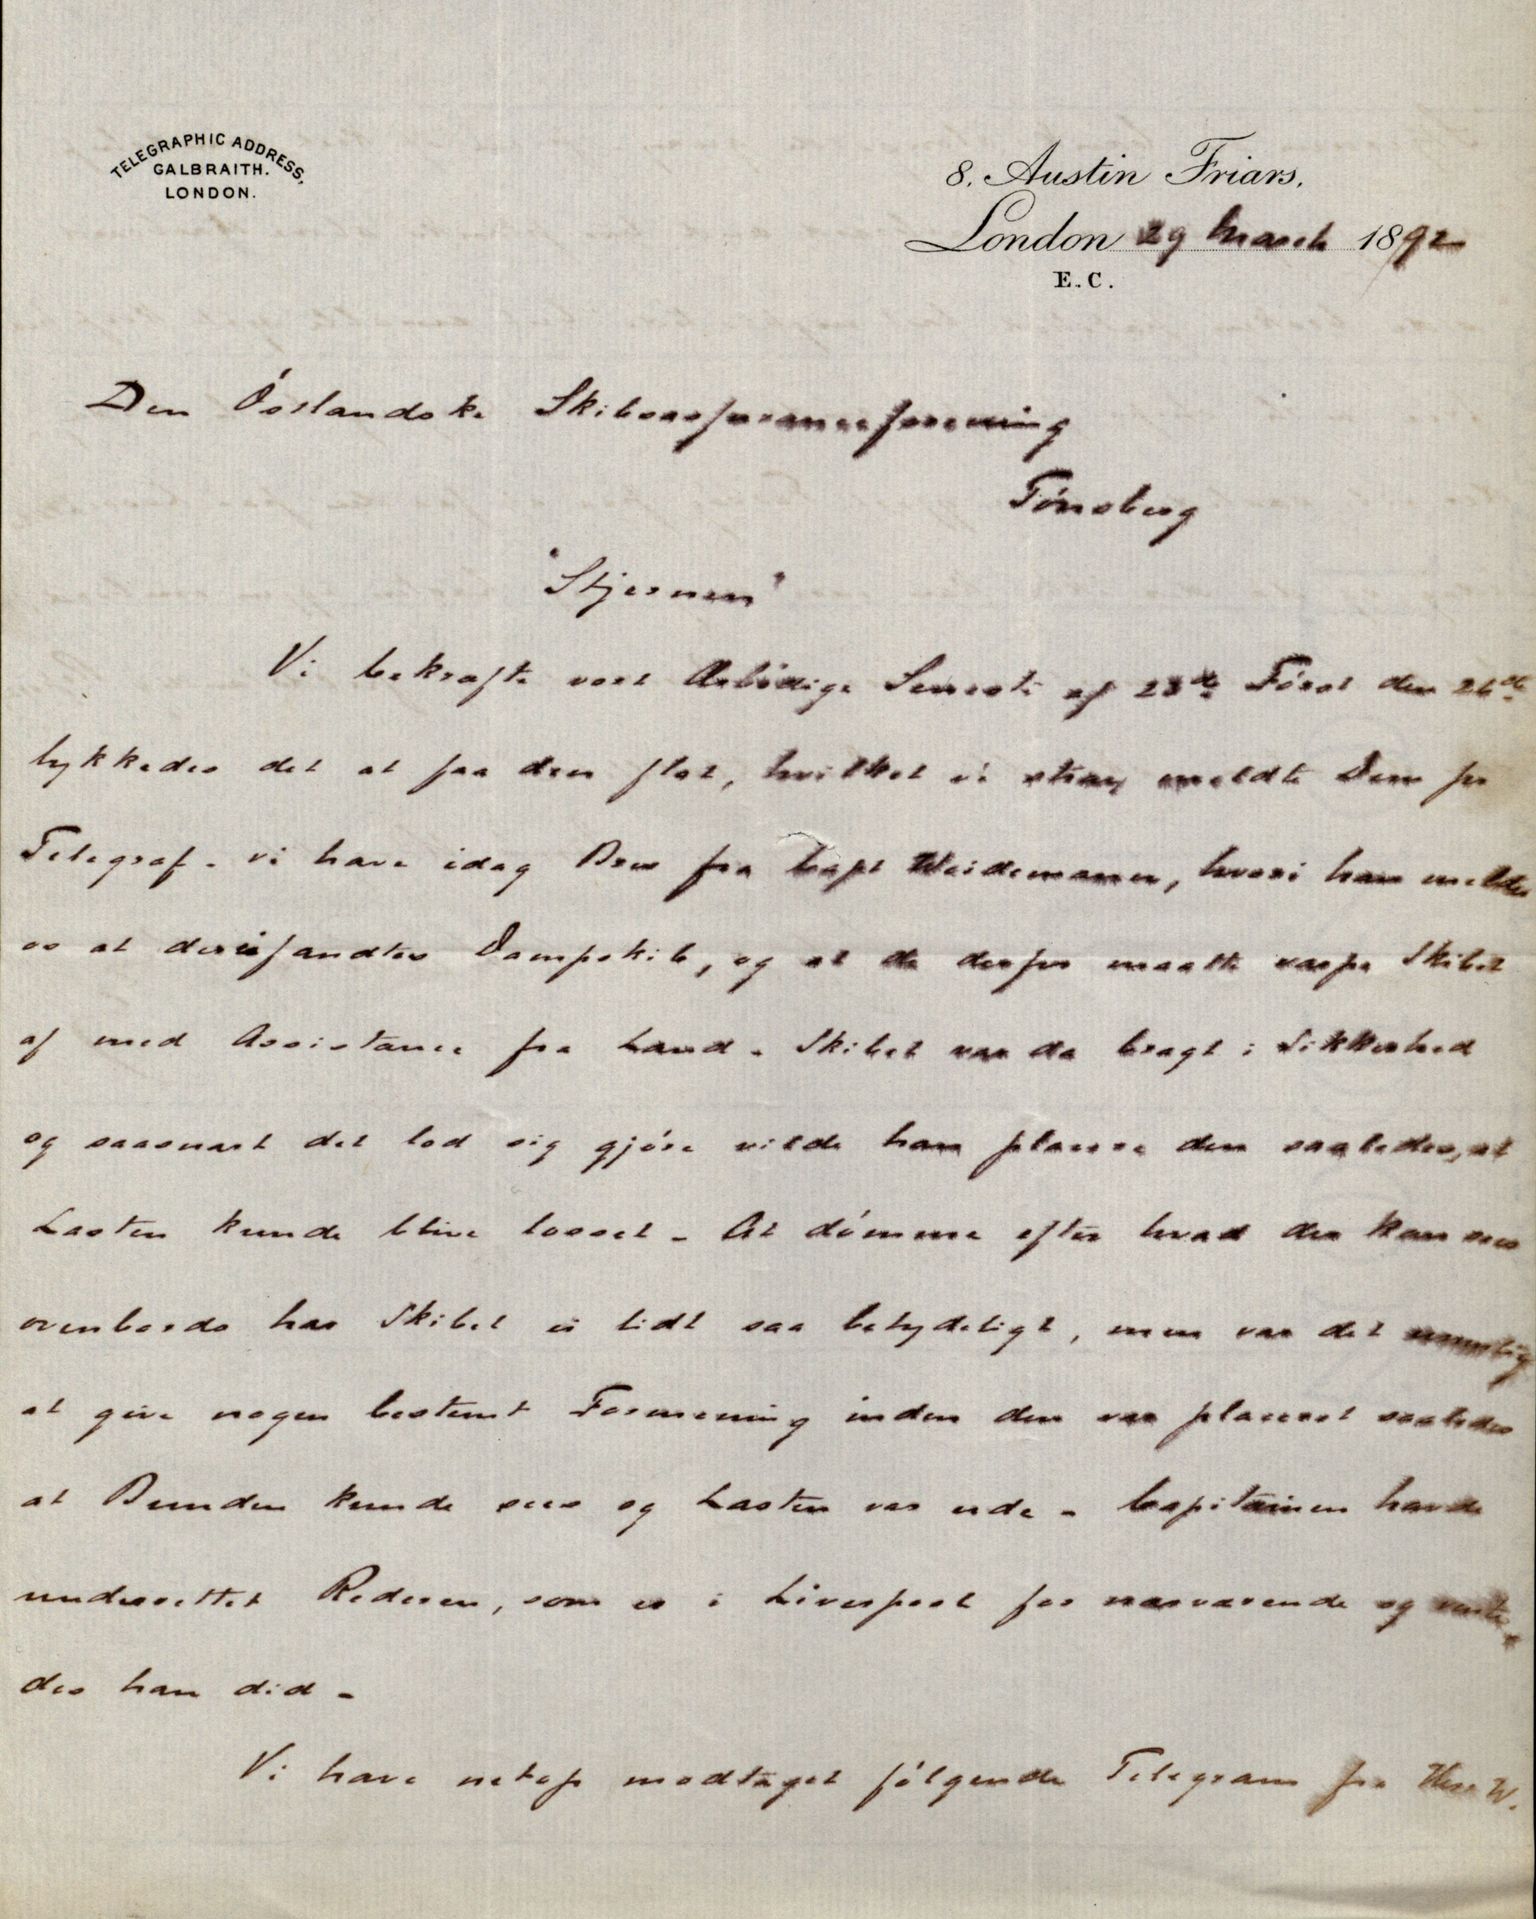 TELEGRAPHIC ADDRESS,
GALBRAITH.
LONDON.
8. Austin Friars,
London 29 March 1892
E.C.
Den Óstlandske Skibsassuranceforening
Tónsberg
"Stjernen"
Vi bekræfte vort Ærbödige Seneste af 23de Först den 26de
lykkedes det at faa den flot, hvilket vi strax meldte Dem per
Telegraf. vi have idag Brev fra Capt Weidemann, hvori han melder
os at der ei fandtes Dampskib, og at de derfor maatte varpe Skibet
af med Assistance fra Land. Skibet var da bragt i Sikkerhed
og saasnart det lod sig gjóre vilde han placere den saaledes, at
Lasten kunde blive losset. At dómme efter hvad der kan sees
ovenbords har Skibet ei lidt saa betydeligt, men var det
at give nogen bestemt Formening inden den var placeret saaledes
at Bunden kunde sees og Lasten var ude. Capitainen havde
underrettet Rederen, som er i Liverpool for nærværende og vente
des han did.
Vi have netop modtaget fólgende Telegram fra Herr W.